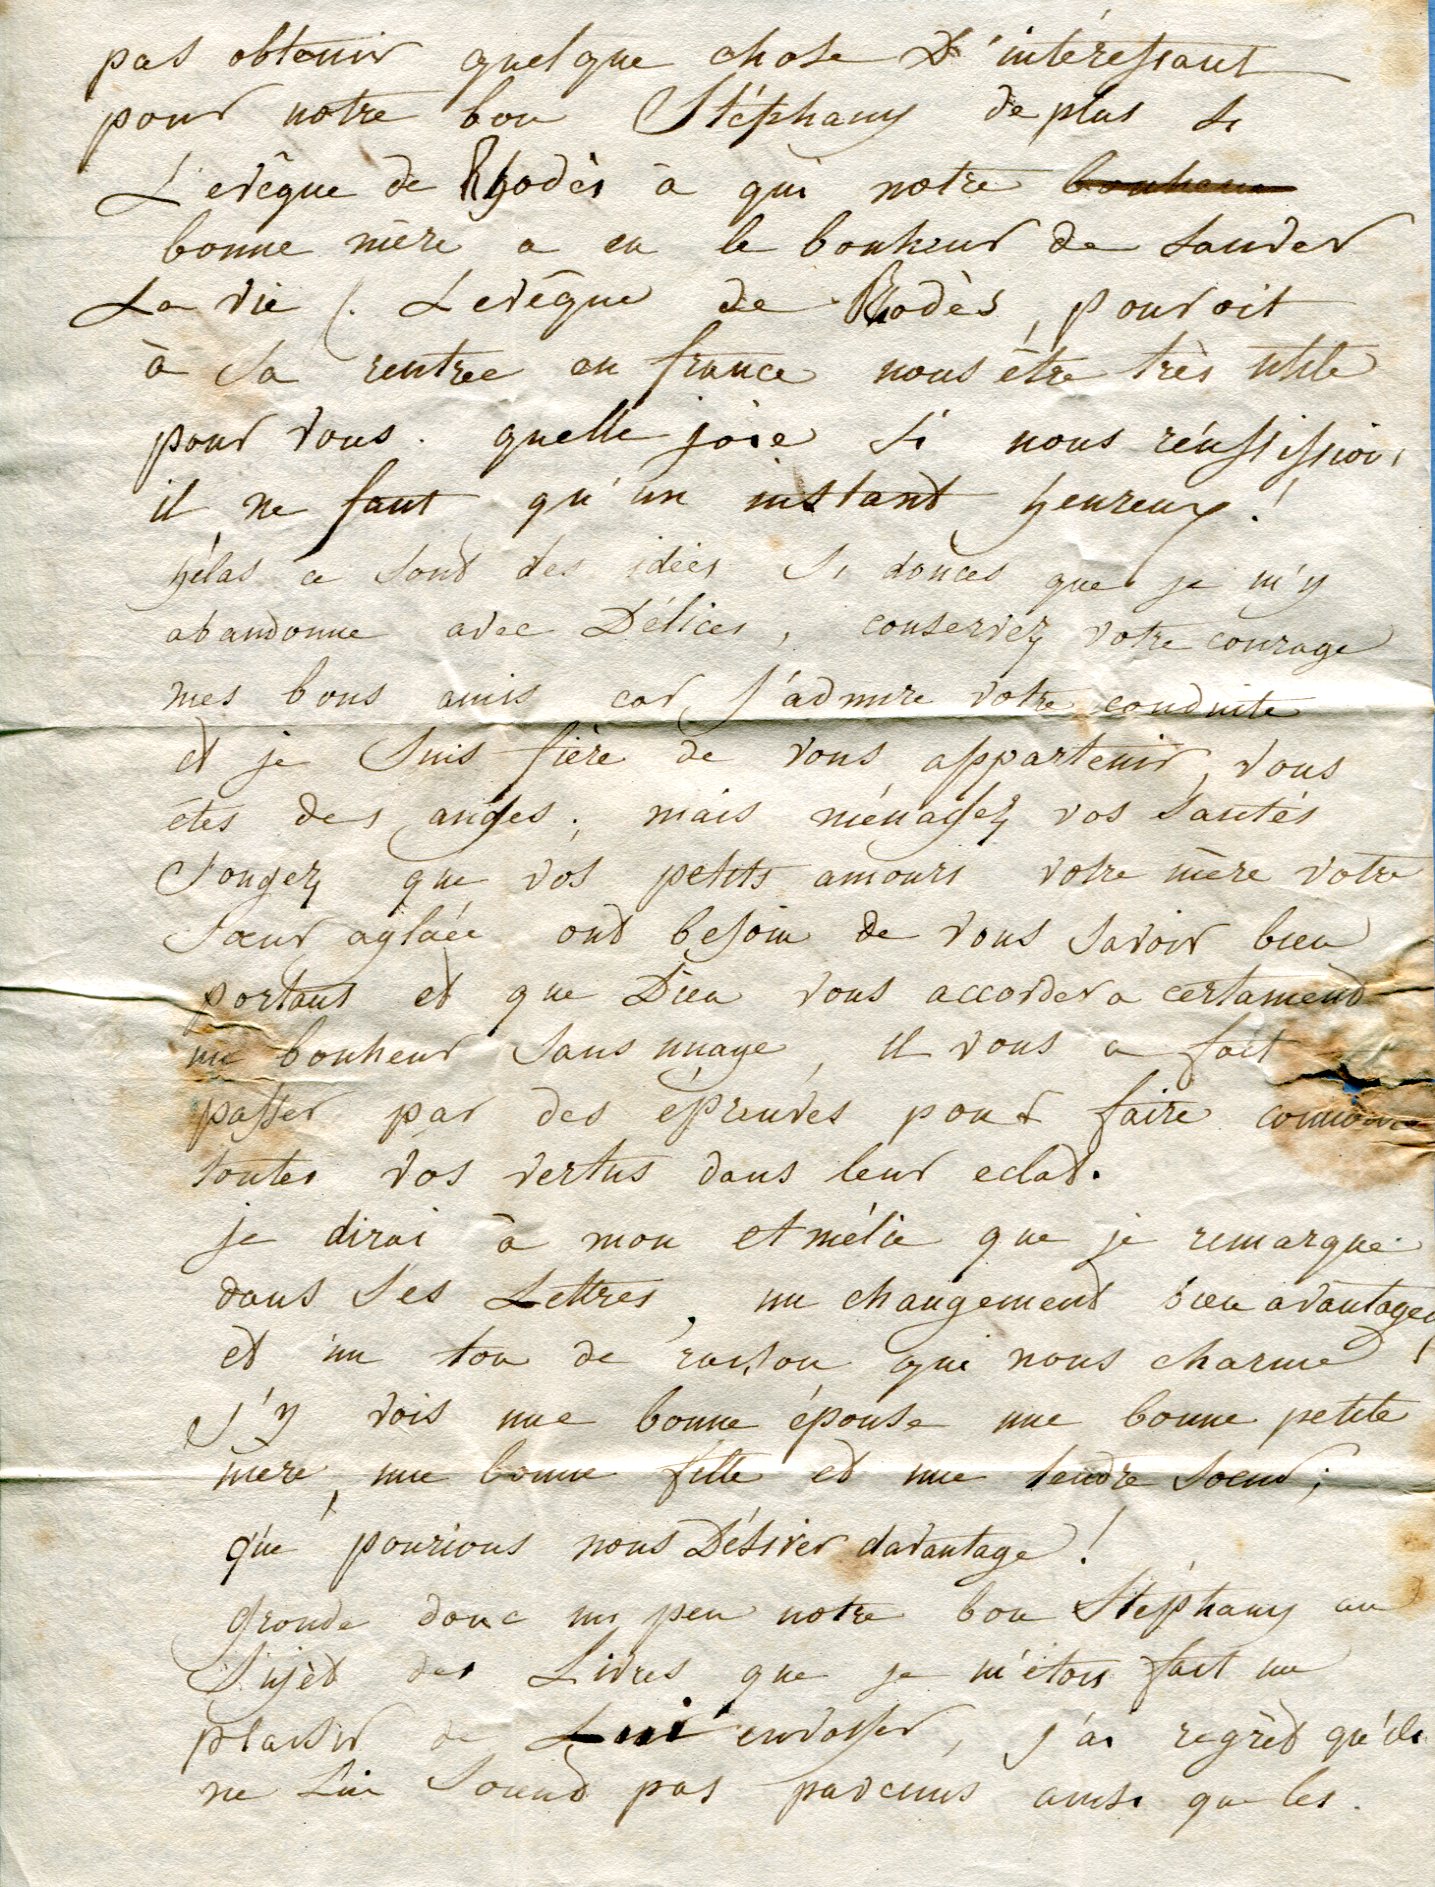 pas obtenir quelque chose D'intéressant
pour notre bon Stéphany de plus si
L'evêque de Rhodès à qui notre bonheur
bonne mère a eu le bonheur de sauver
La vie (. Levêque de Rhodès, pouroit
à sa rentrée en france nous être très utile
pour vous. quelle joie si nous réussissions
il ne faut qu'un instant heureux !
hélas ce sont des idées si douces que je m'y
abandonne avec Délices, conservéz votre courage
mes bons amis car j'admire votre conduite
et je suis fière de vous appartenir, vous
étes des anges ; mais ménagez vos santés
songez que vos petits amours votre mère votre
soeur aglaée ont besoin de vous savoir bien
portant et que Dieu vous accordera certament
un bonheur sans nuage, il vous a fait
passer par des épreuves pour faire connoitre
toutes vos vertus dans leur eclat.
je dirai à mon Amélie que je remarque
dans ses Lettres, un changement bien avantageux
et un ton de raison qui nous charme,
j'y vois une bonne épouse une bonne petite
mère, une bonne fille et une tendre soeur ;
que pourions nous Désirer davantage !
Gronde donc un peu notre bon Stéphany au
sujèt des Livres que je m'étois fait un
plaisir de Lui envoyer, j'ai regrèt qu'ils
ne Lui soient pas parvenus ainsi que les.